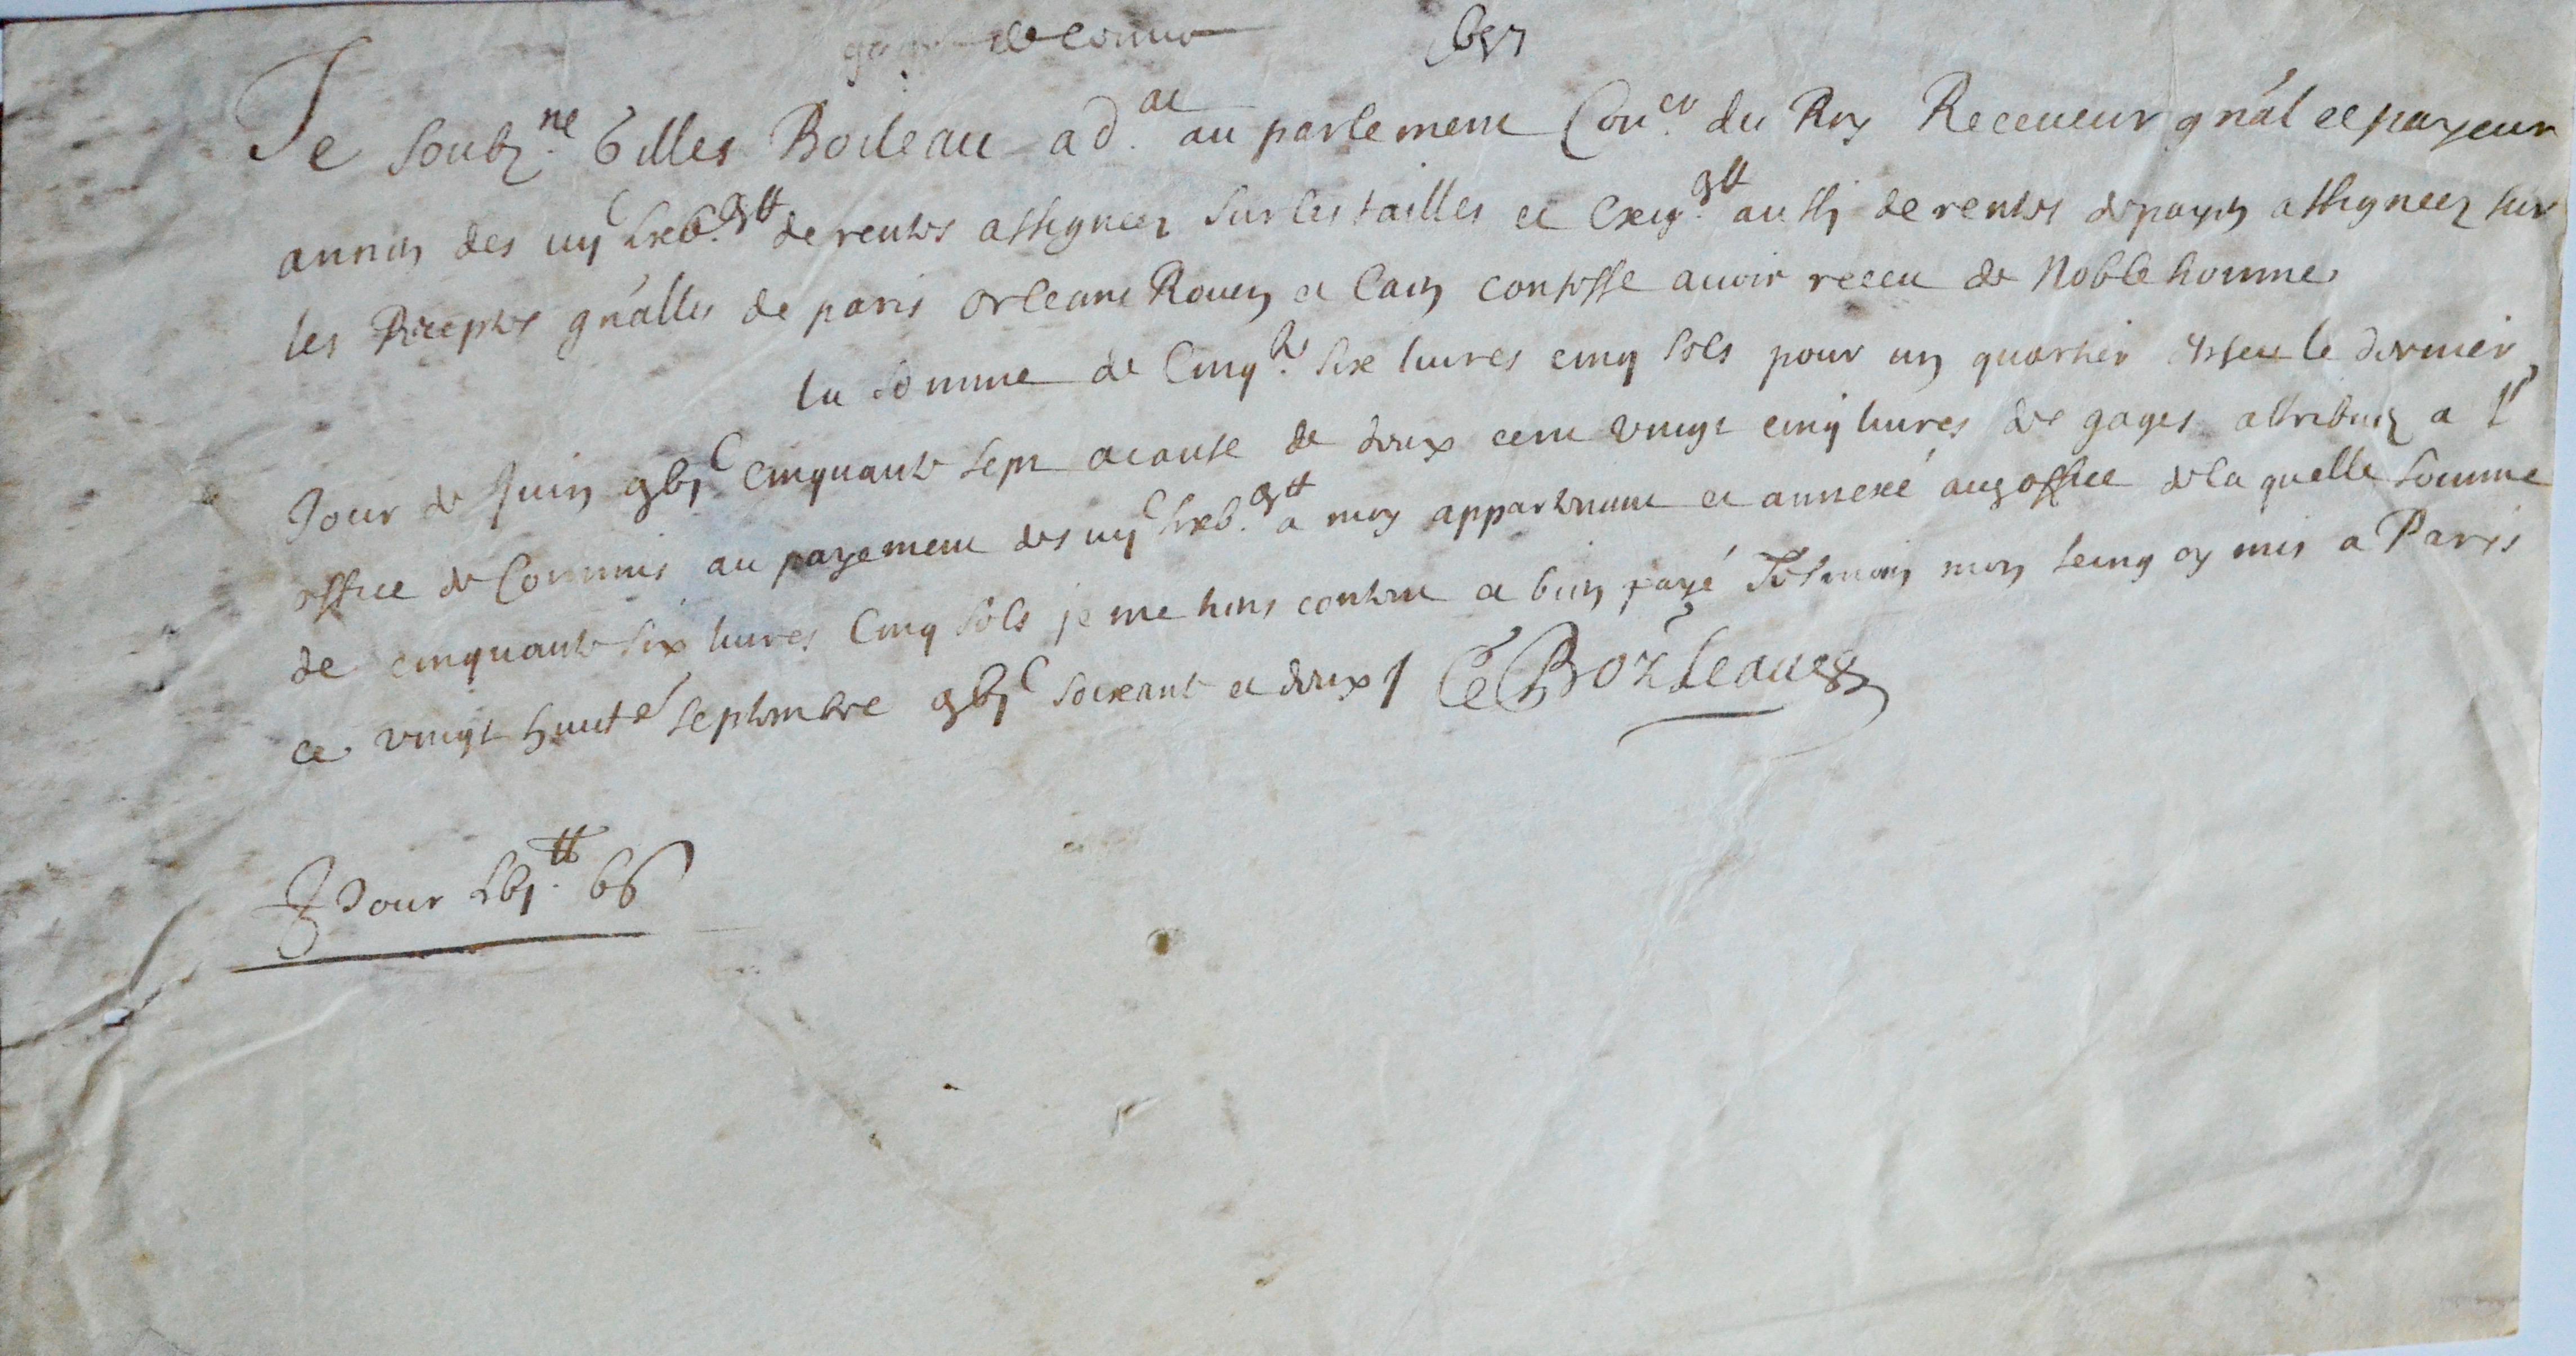 de commis 657
Je soubz.ne Gilles Boileau ad.at au parlement Con.er du Roy Receveur gnāl et payeur
antien des iiijC Lxxb.m tt de rentes assignees sur les tailles et Cxxij.m tt aussi de rentes assignees sur
les Receptes gnālles de paris orleans Rouen et Caen confesse avoir receu de Noble homme
la somme de Cinq.te six livres cinq sols pour un quartier escheu le dernier
Jour de Juin gbjC cinquante sept a cause de deux cent vingt cinq livres de gages attribuez a l'
office de Commis au payement des iiijC Lxxb.m tt a moy appartenant et annexé aud office de laquelle somme
de cinquante six livres Cinq sols je me tiens content et bien payé Tesmoin mon seing cy mis a Paris
ce vingt huict.e septembre gbjC soixante et deux / Boileau
Pour Lbj.tt bs